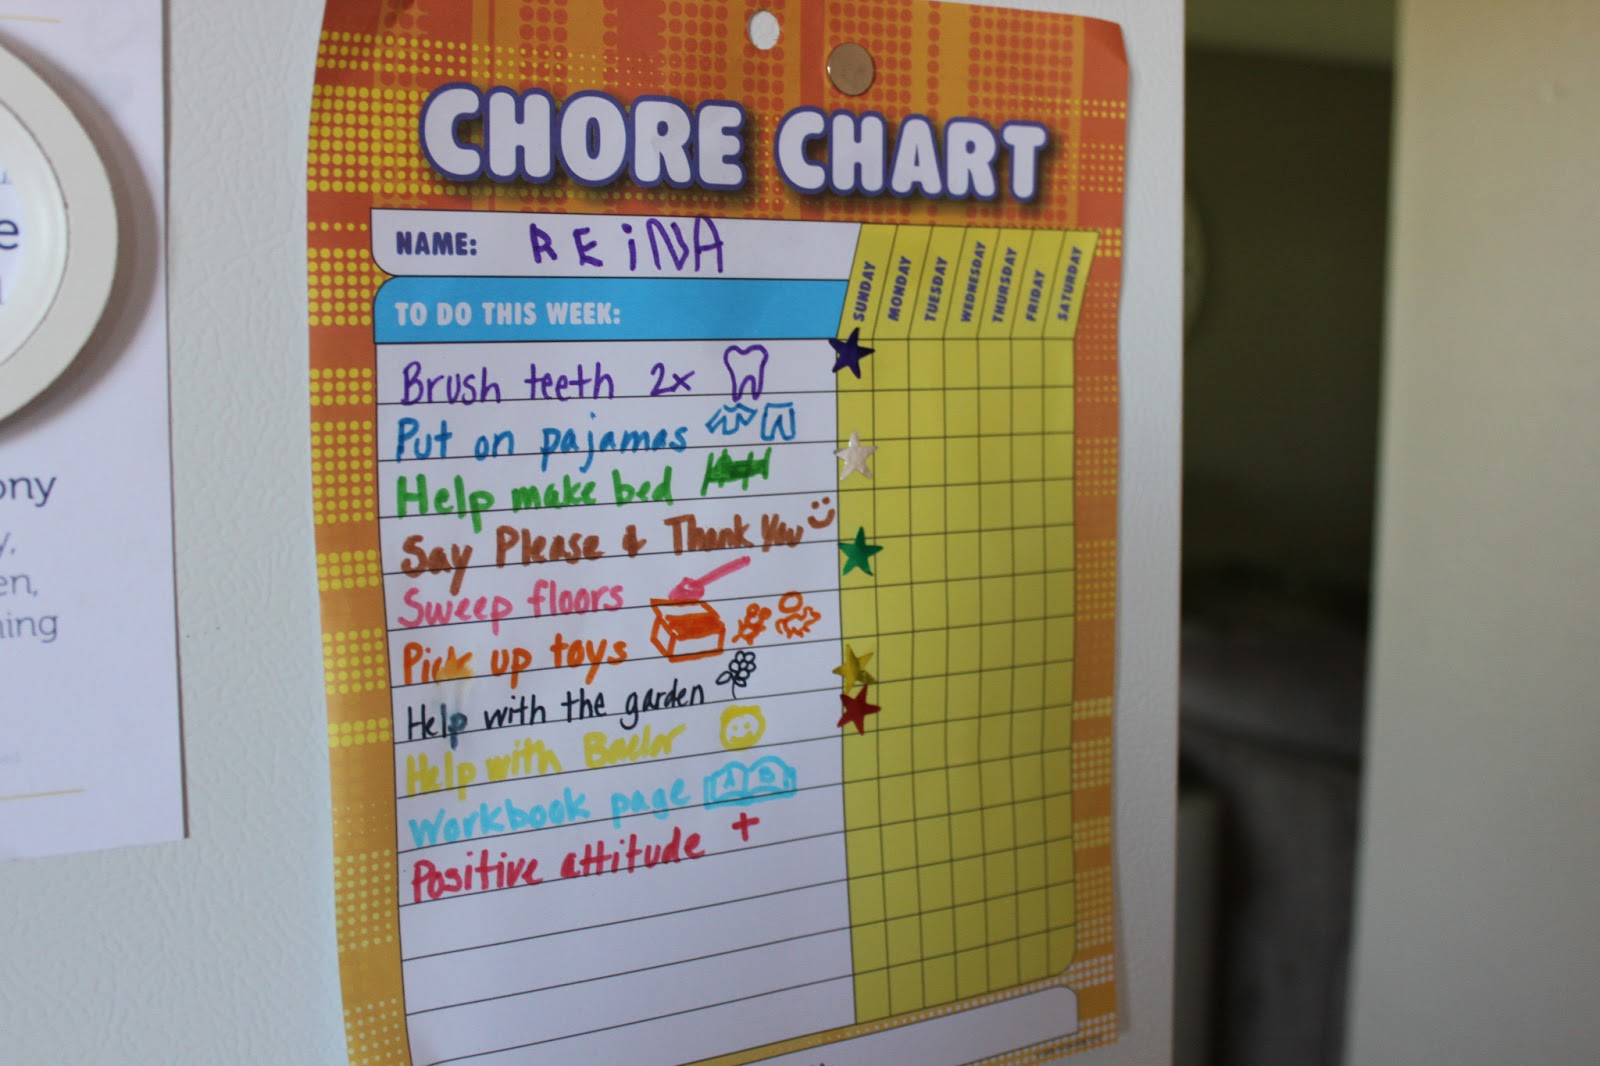 CHORE CHART
NAME: REiNA
TO DO THIS WEEK:
SUNDAY
MONDAY
TUESDAY
WEDNESDAY
THURSDAY
FRIDAY
SATURDAY
Brush teeth 2x
Put on pajamas
Help make bed
Say Please & Thank You
Sweep floors
Pick up toys
Help with the garden
Help with Baelor
Workbook page
A B
Positive attitude +
ony
y,
en,
ning
e